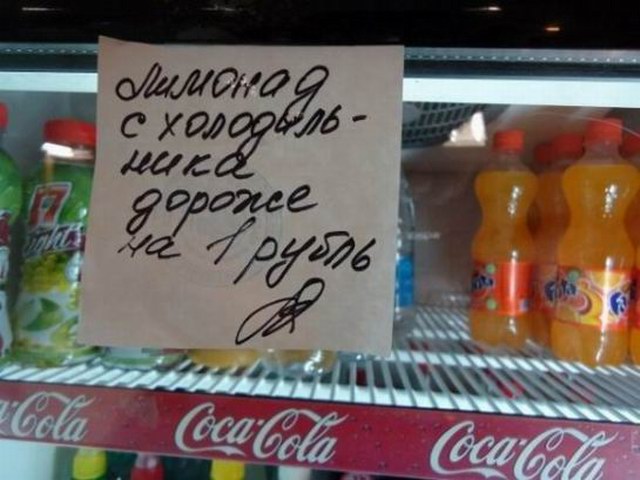 Лимонад
с холодиль-
ника
дороже
на 1 рубль
Coca-Cola
Coca-Cola
Coca-Cola